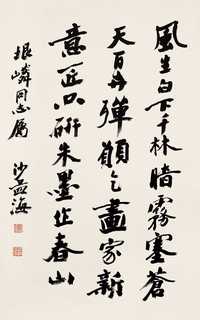 風生白下千林暗霧塞蒼
天百卉殫願乞畫家新
意匠只研朱墨作春山
垠嶙同志屬
沙孟海